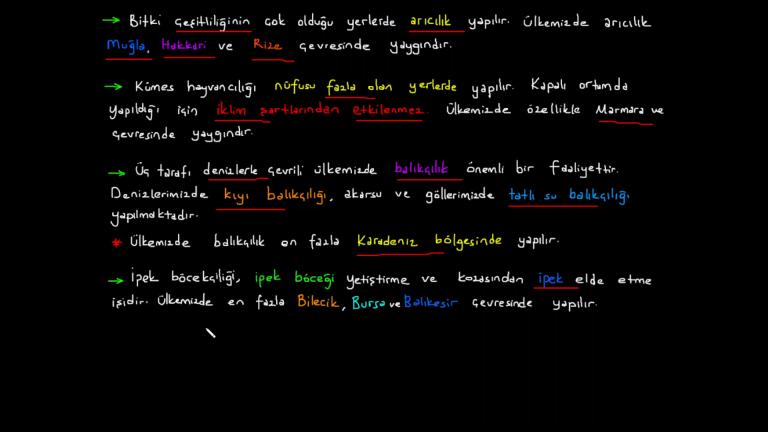 → Bitki çeşitliliğinin çok olduğu yerlerde arıcılık yapılır. Ülkemizde arıcılık
Muğla, Hakkari ve Rize çevresinde yaygındır.
→ Kümes hayvancılığı nüfusu fazla olan yerlerde yapılır. Kapalı ortamda
yapıldığı için iklim şartlarından etkilenmez. Ülkemizde özellikle Marmara ve
çevresinde yaygındır.
→ Üç tarafı denizlerle çevrili ülkemizde balıkçılık önemli bir faaliyettir.
Denizlerimizde kıyı balıkçılığı, akarsu ve göllerimizde tatlı su balıkçılığı
yapılmaktadır.
* Ülkemizde balıkçılık en fazla Karadeniz bölgesinde yapılır.
→ İpek böcekçiliği, ipek böceği yetiştirme ve kozasından ipek elde etme
işidir. Ülkemizde en fazla Bilecik, Bursa ve Balıkesir çevresinde yapılır.